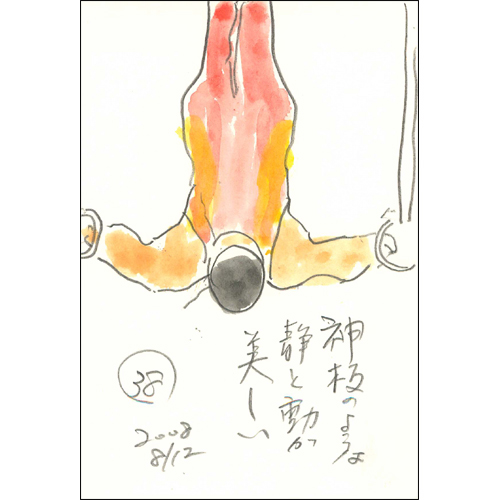 神技のような
静と動が
美しい
38
2008
8/12